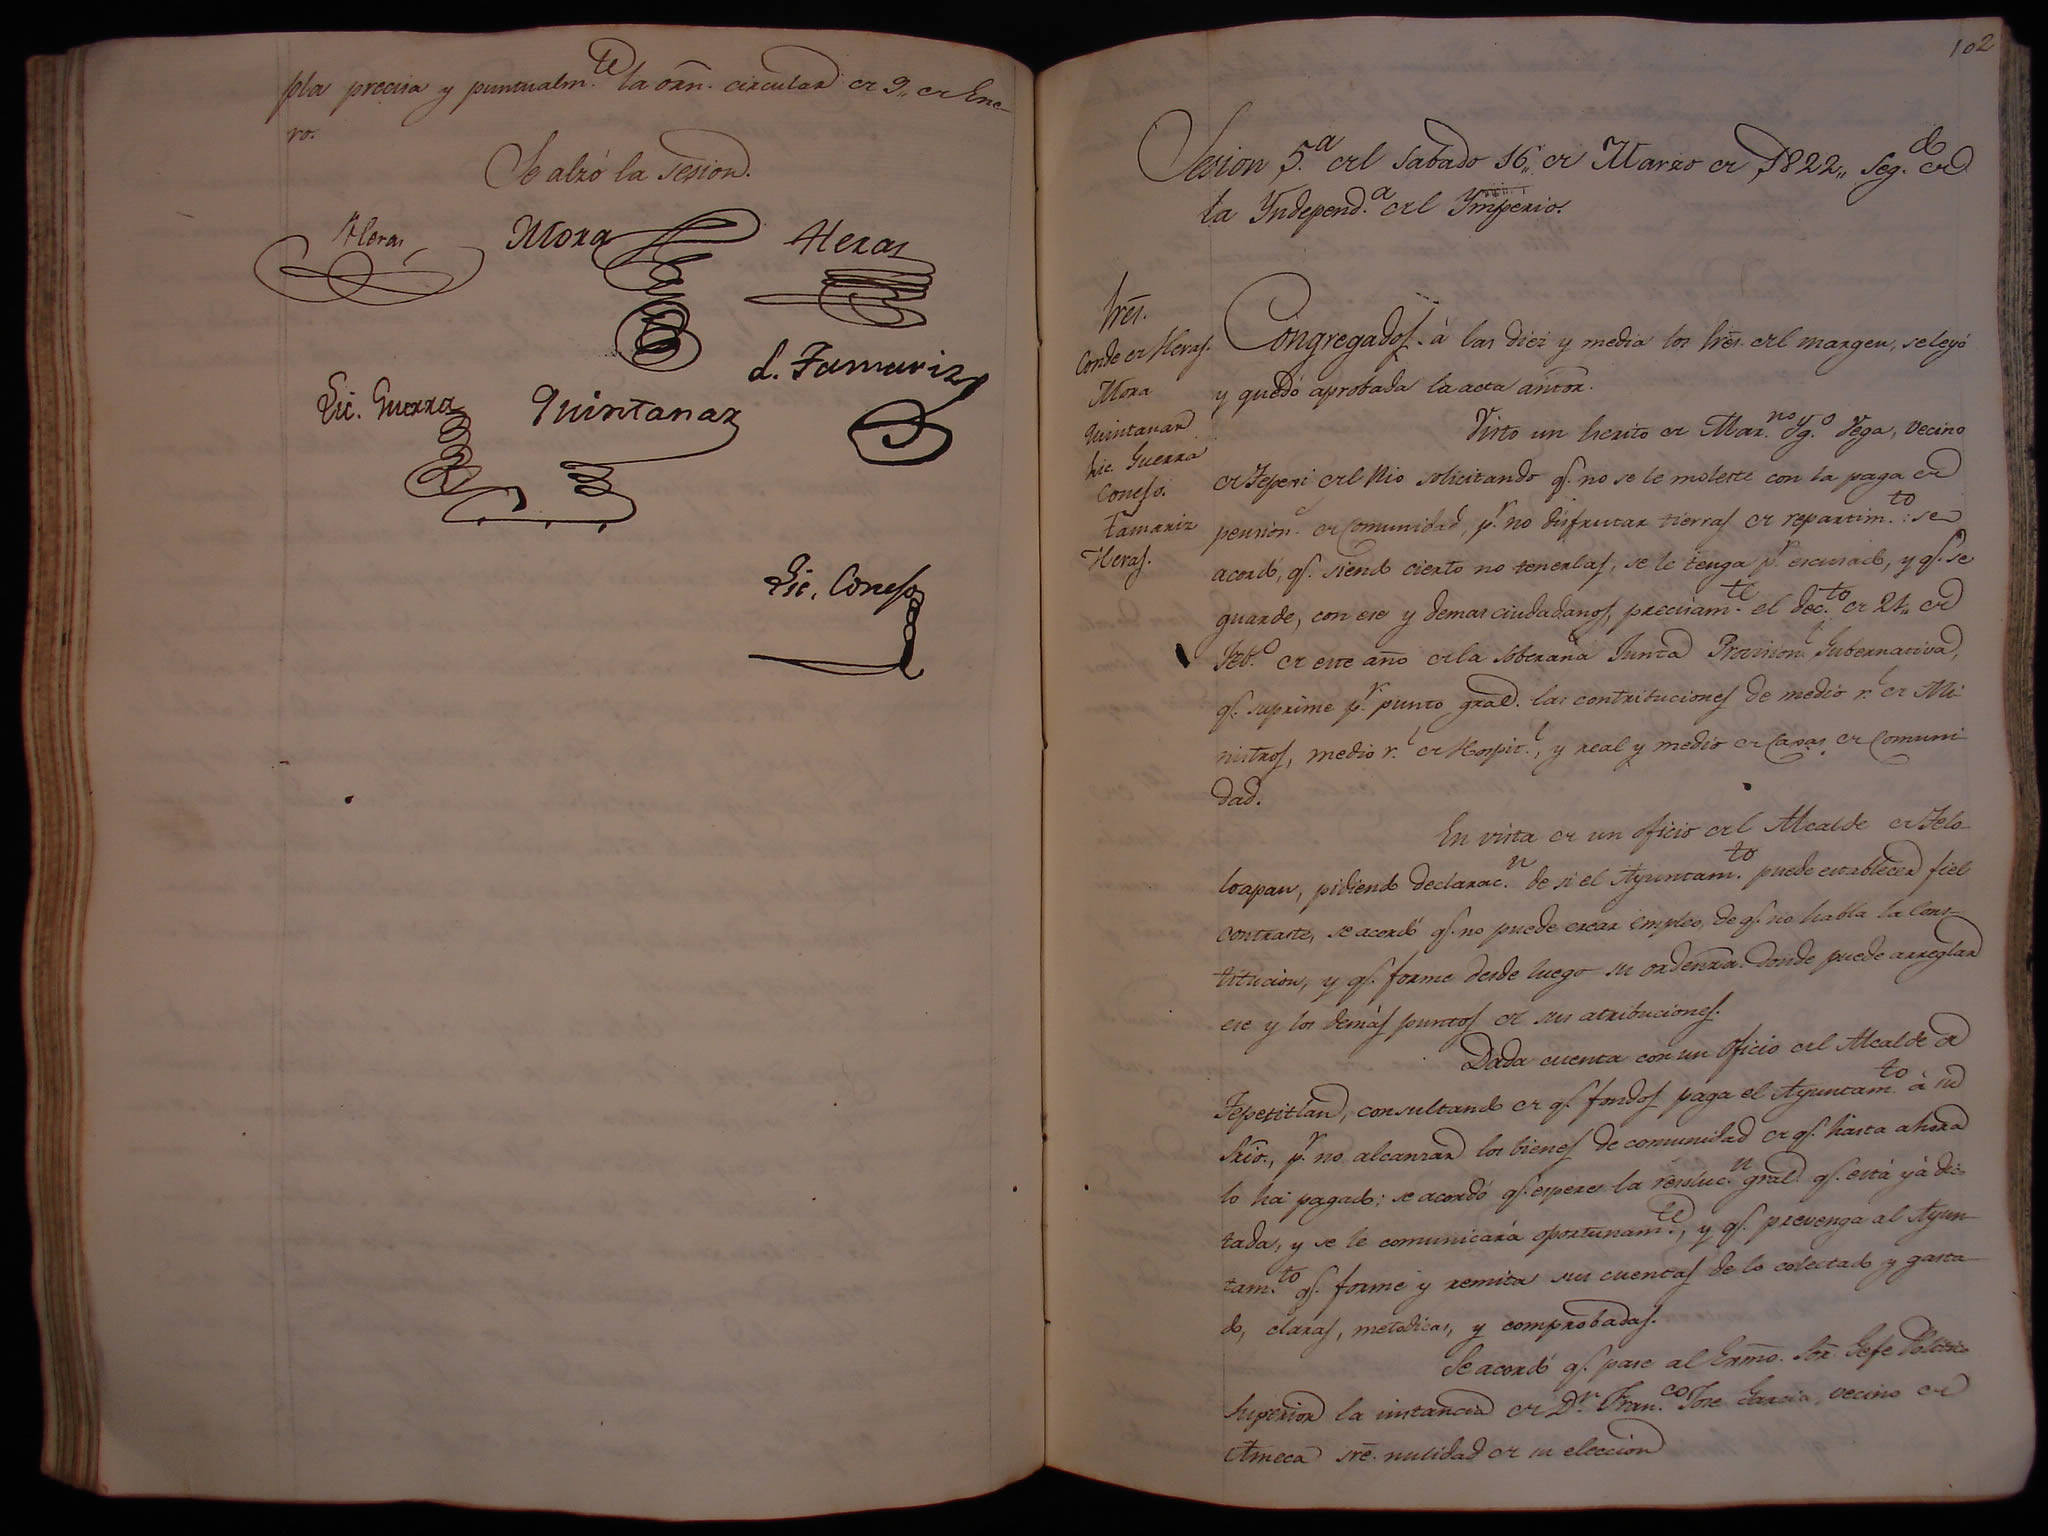 pla precisa y puntualm.te la orn. circular de 9,, de Ene-
ro.
Se alzó la sesion.
Heras Mora Heras
L. Tamariz
Lic. Guerra Quintanar
Lic. Conejo
102
Sesion 5.a del sabado 16,, de Marzo de 1822,, seg.do de
la Yndepend.a del Ymperio.
Sres.
Conde de Heras.
Mora
Quintanar
Lic. Guerra
Conejo.
Tamariz
Heras.
Congregados à las diez y media los Sres. del margen, se leyó
y quedó aprobada la acta antor.
Visto un Escrito de Mar.no Yg.o Vega, vecino
de Tepexi del Rio solicitando q. no se le moleste con la paga de
pension de Comunidad, p.r no disfrutar tierras de repartim.to: se
acordó, q. siendo cierto no tenerlas, se le tenga p.r escusado, y q. se
guarde, con ese y demas ciudadanos, precisam.te el dec.to de 21,, de
Feb.o de este año de la soberana Junta Provision.l Gubernativa,
q. suprime p.r punto gral. las contribuciones de medio r.l de Mi-
nistros, medio r.l de Hospit.l, y real y medio de Caxas de Comuni-
dad.
En vista de un oficio del Alcalde de Telo-
loapan, pidiendo declarac.n de si el Ayuntam.to puede establecer fiel
contraste, se acordó q. no puede crear empleo, de q. no habla la Cons-
titucion, y q. forme desde luego su ordenza. donde puede arreglar
ese y los demàs puntos de sus atribuciones.
Dada cuenta con un oficio del Alcalde de
Tepetitlan, consultando de q. fondos paga el Ayuntam.to à su
Srio., p.r no alcanzar los bienes de comunidad de q. hasta ahora
lo ha pagado; se acordó q. espere la resoluc.n gral. q. està yà dic-
tada, y se le comunicarà oportunam.te, y q. prevenga al Ayun-
tam.to q. forme y remita sus cuentas de lo colectado y gasta-
do, claras, metodicas, y comprobadas.
Se acordó q. pase al Exmo. Sor. Gefe Politico
Superior la instancia de D.n Fran.co Jose Garcia, vecino de
Ameca sre. nulidad de su eleccion